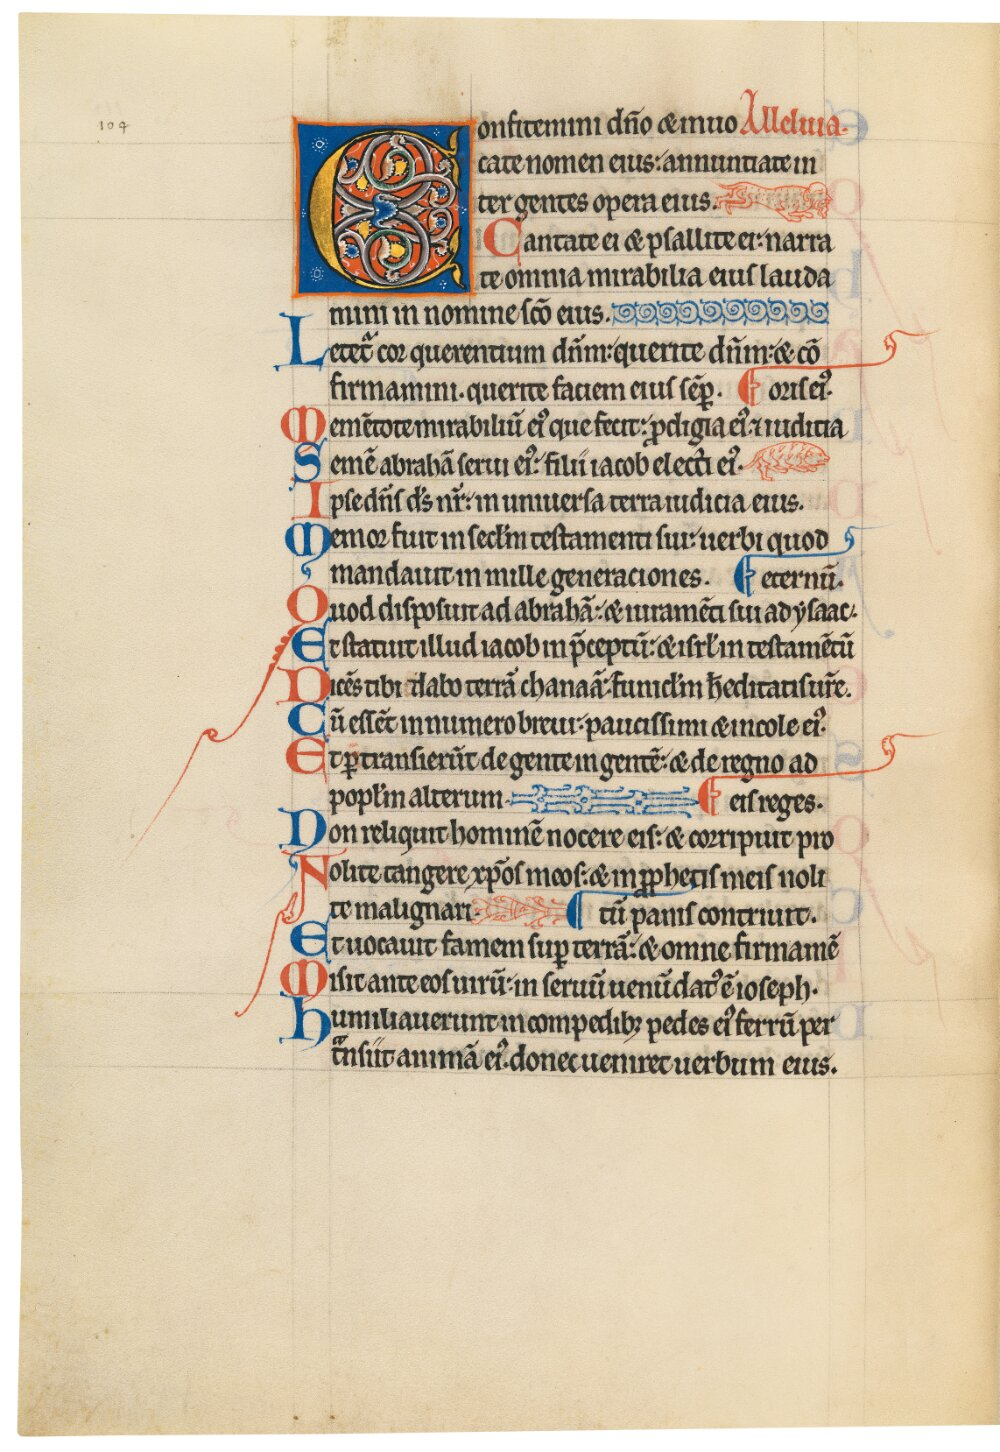 104
Confitemini dño & inuo Alleluia.
cate nomen eius: annuntiate in
ter gentes opera eius.
Cantate ei & psallite ei: narra
te omnia mirabilia eius lauda
mini in nomine sc̃o eius.
Letet᷑ cor querentium dñm: querite dñm: & cõ
firmamini. querite faciem eius sẽp. ¶ oris eiꝰ.
Memẽtote mirabiliũ eiꝰ que fecit: ꝓdigia eiꝰ ⁊ iudicia
Semẽ abrahã serui eiꝰ: filii iacob electi eiꝰ.
Ipse dñs d̃s nr̃: in uniuersa terra iudicia eius.
Memor fuit in secl̃m testamenti sui: uerbi quod
mandauit in mille generaciones. ¶ eternũ.
Quod disposuit ad abrahã: & iuramẽti sui ad ysaac.
Et statuit illud iacob in p̃ceptũ: & isrl̃ in testamẽtũ
Dicẽs tibi dabo terrã chanaã: funicl̃m h̃editatis ur̃e.
Cũ essẽt in numero breui: paucissimi & incole eiꝰ.
Et ꝑtransierũt de gente in gentẽ: & de regno ad
popl̃m alterum. ¶ eis reges.
Non reliquit hominẽ nocere eis: & corripiut pro
Nolite tangere xp̃os meos: & in ꝓphetis meis noli
te malignari. ¶ tũ panis contriuit.
Et uocauit famem suꝑ terrã: & omne firmamẽ
Misit ante eos uirũ: in seruũ uenũdatꝰ ẽ ioseph.
Humiliauerunt in compedibꝫ pedes eiꝰ ferrũ per
t̃nsiit animã eiꝰ. donec ueniret uerbum eius.